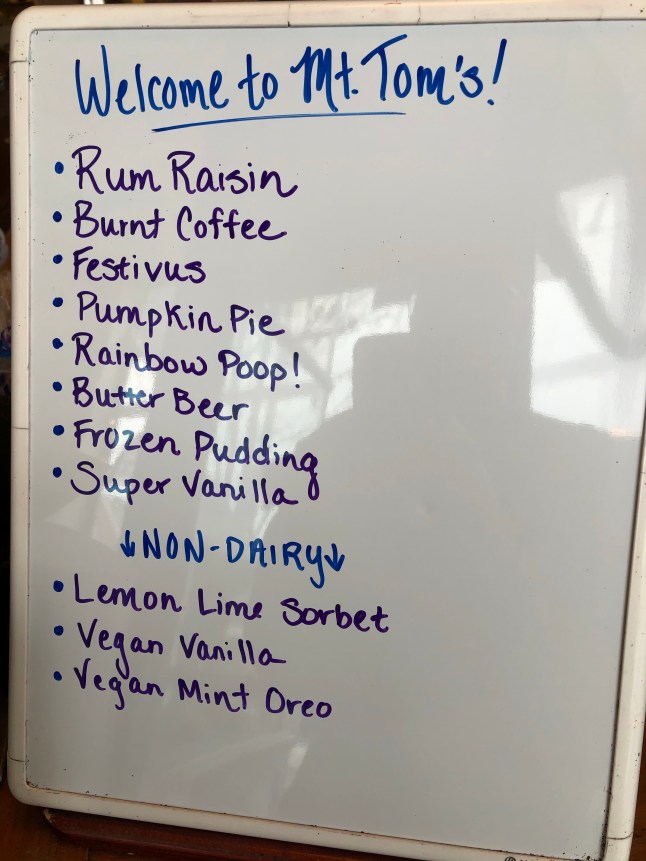 Welcome to Mt. Tom's!
• Rum Raisin
• Burnt Coffee
• Festivus
• Pumpkin Pie
• Rainbow Poop!
• Butter Beer
• Frozen Pudding
• Super Vanilla
↓NON-DAIRY↓
• Lemon Lime Sorbet
• Vegan Vanilla
• Vegan Mint Oreo